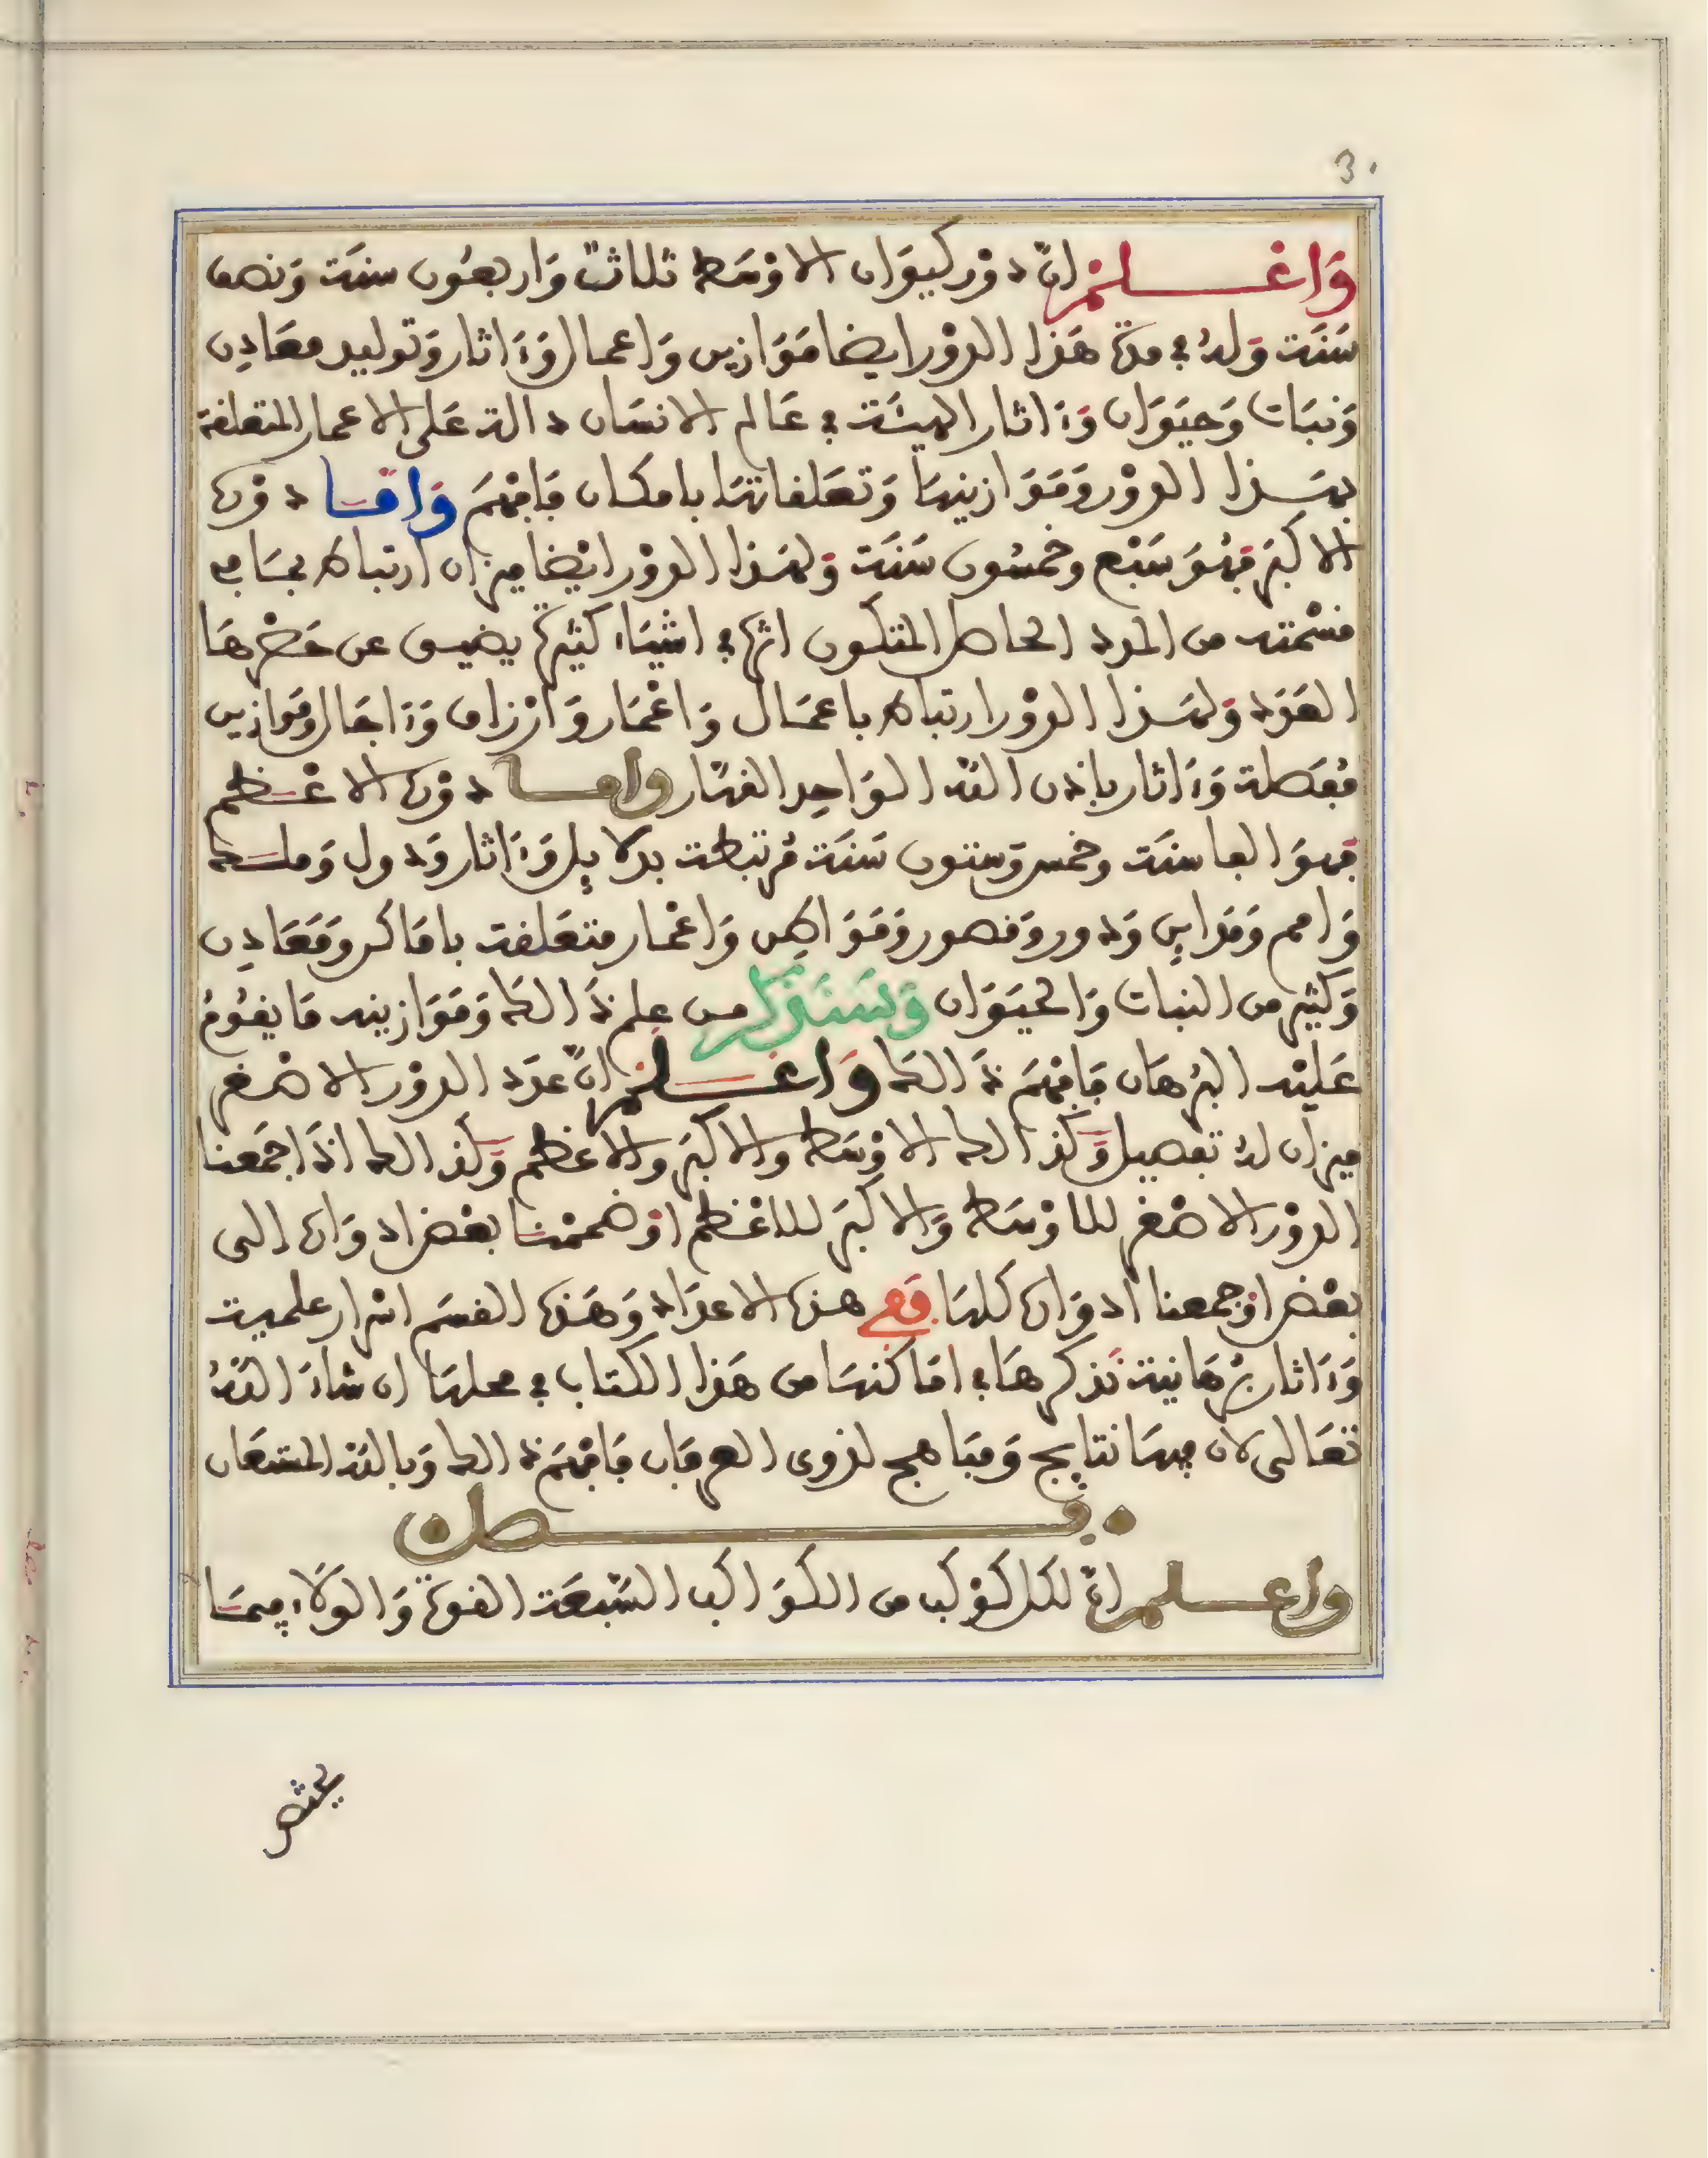 30
وَاعْلَمْ انّ دوْر كيوَان الاوْسَط ثلاثة وَاربعُون سنَة وَنصف
سَنَة وَلهُ في مدة هَذا الدوْر ايضا مَوَازين وَاعمال وَءَاثار وَتوليد معَادِن
وَنبَات وَحيَوَان وَءَاثار الهيئَة في عَالم الانسَان دالة عَلى الاعمار المتعلقة
بهَذا الدوْر وَمَوَازينهَا وَتعَلقاتهَا بامكان فَافهَمْ وَامّا دوْره
الاكبَر فهُوَ سَبْع وخمسُون سَنَة وَلهَذا الدوْر ايْضا ميزان ارتباط بمَا في
قسْمته من المدد الحاصل المتكون اثره في اشيَاء كثيرة يضيق عن حَصْرهَا
العَدد وَلهَذا الدوْر ارتباط باعمَال وَاعْمَار وَارْزاق وَءَاجَال وَمَوازين
مُعَطلة وَءَاثار باذن اللّه الوَاحِد القهّار وَامّا دوْره الاعْظم
فهوَ الفا سنَة وخمس وَستون سَنَة مُرتبطة بدلايِل وَءَاثار وَدول وَملك
وَامم وَمَدايِن وَدور وَقصور وَمَوَاطِن وَاعْمار متعَلقة باماكن وَمَعَادِن
وَكثير من النبات وَالحيَوَان وَسَنذكر من عِلم ذَالك وَمَوَازينه مَا يقُومُ
عَليْه البُرهَان فَافهَمْ ذَالك وَاعْلَمْ انّ عدَد الدوْر الاصْغر
ميزان لهُ تفصيل وَكذالك الاوْسَط والاكبَر والاعظم وَكذالك اذَا جمَعنا
الدوْر الاصْغر للاوْسَط وَالاكبَر للاعْظم اوْ ضممْنا بعْض ادوَاره الى
بعْض اوْ جمعنا ادوَاره كلهَا فَفِي هذه الاعدَاد وَهَذه القسَم اسْرار علمية
وَءَاثار برْهَانية نَذكرهَا في امَاكنهَا من هَذا الكتاب في محلهَا ان شاءَ اللّهُ
تعَالى لان فيهَا نتايِج وَمبَاهج لذوى العرفَان فَافهَمْ ذالك وَباللّه المستعَان
فصل
واعلم انّ لكل كوْكب من الكوَاكب السّبعَة القوة وَالوَلاء فيمَا
يختص